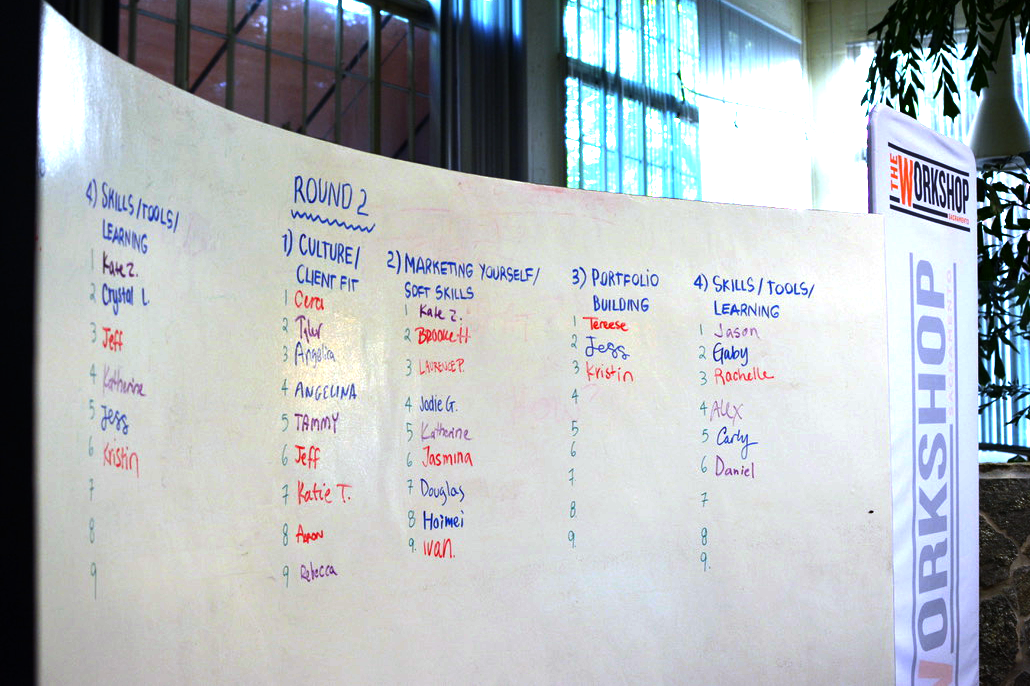 4) SKILLS/TOOLS/
LEARNING
1 Kate Z.
2 Crystal L
3 Jeff
4 Katherine
5 Jess
6 Kristin
7
8
9
ROUND 2
1) CULTURE/
CLIENT FIT
1 Cera
2 Tyler
3 Angelica
4 ANGELINA
5 TAMMY
6 Jeff
7 Katie T.
8 Aaron
9 Rebecca
2) MARKETING YOURSELF/
SOFT SKILLS
1 Kate Z.
2 BROOKE H.
3 LAURENCE P.
4 Jodie G.
5 Katherine
6 Jasmina
7 Douglas
8 Hoimei
9. IVAN.
3) PORTFOLIO
BUILDING
1 Tereese
2 Jess
3 Kristin
4
5
6
7
8
9.
4) SKILLS/TOOLS/
LEARNING
1 Jason
2 Gaby
3 Rachelle
4 ALEX
5 Carly
6 Daniel
7
8
9.
THE WORKSHOP
SACRAMENTO
WORKSHOP
SACRAMENTO
WORKSHOP